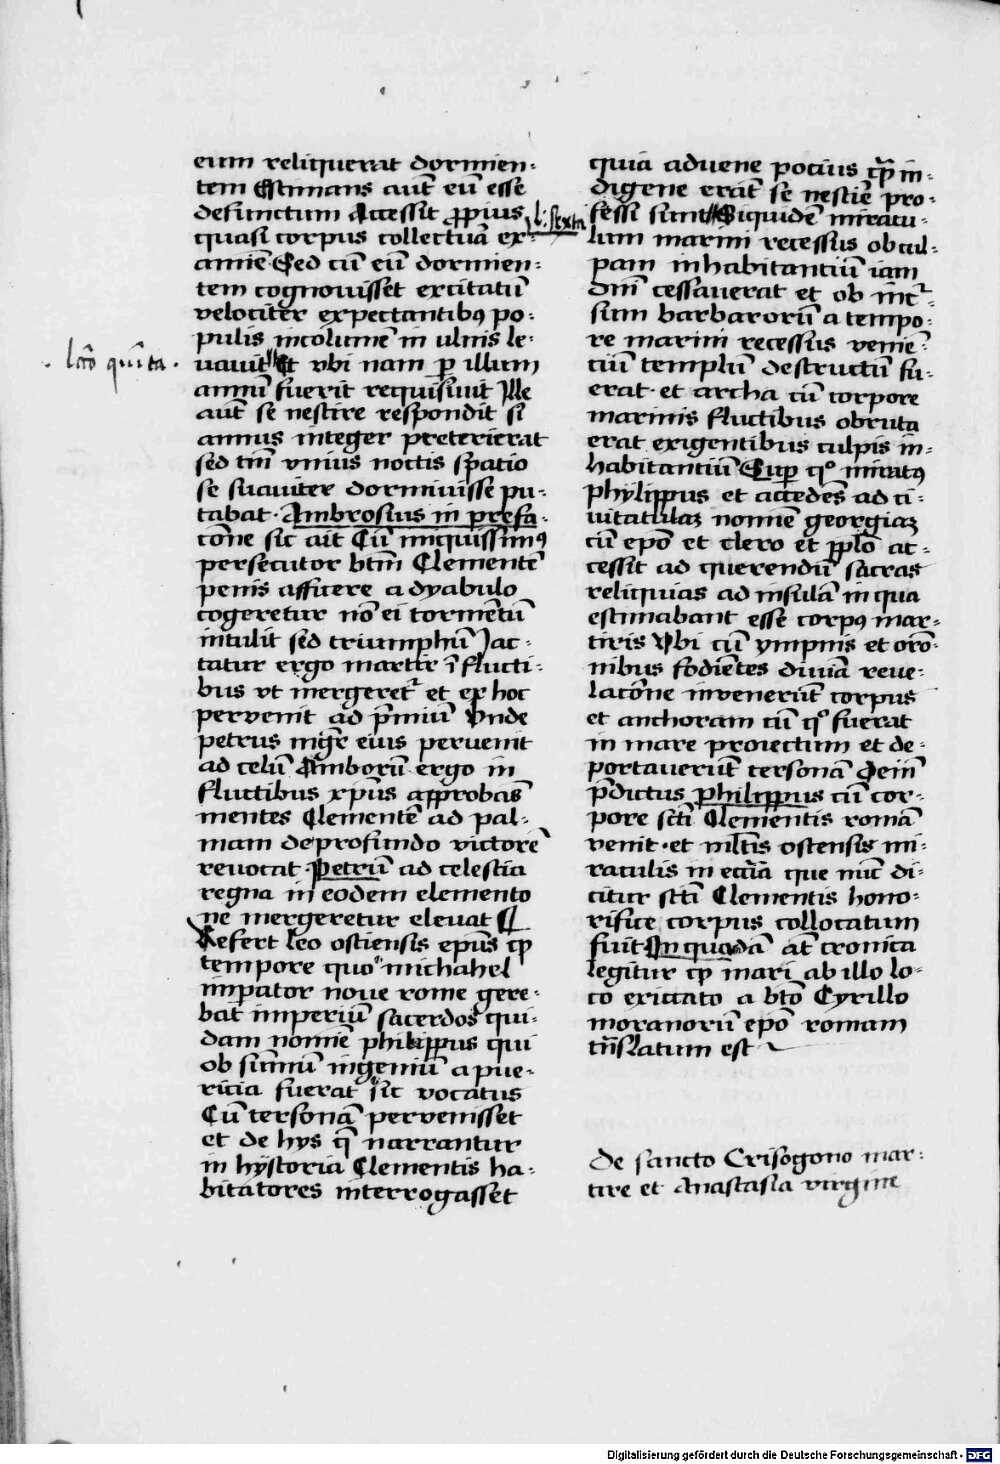 eum reliquerat dormien-
tem Estimans aut̄ eū esse
defunctum Accessit ꝓpius
quasi corpus collectuā ex-
amīe Sed cū eū dormien-
tem cognouisset excitatū
velociter expectantibꝰ po-
pulis incolumē in ulnis le-
uauit Et vbi nam ꝑ illum
annū fuerit requisiuit Ille
aut̄ se nescire respondit si
annus integer preterierat
sed tm̄ vnius noctis spatio
se suauiter dormiuisse pu-
tabat · Ambrosius in prefa-
cōne sic ait Cū iniquissimꝰ
persecutor btm̄ Clementē
penis afficere a dyabulo
cogeretur nō ei tormētū
intulit sed triumphū Jac-
tatur ergo martir ī flucti-
bus vt mergeret᷑ et ex hoc
pervenit ad p̄miū Vnde
petrus mgr̄ eius pervenit
ad celū Amborū ergo in
fluctibus xp̄us approbās
mentes Clementē ad pal-
mam de profundo victorē
reuocat Petrū ad celestia
regna in eodem elemento
ne mergeretur eleuat ¶
Refert Leo ostiensis ep̄us ꝙ
tempore quo michahel
imꝑator noue rome gere-
bat imperiū sacerdos qui-
dam nomīe philippus qui
ob sūmū ingeniū a pue-
ricia fuerat sic vocatus
Cū tersonā pervenisset
et de hys q̄ narrantur
in hystoria Clementis ha-
bitatores interrogasset
· lcō quīta ·
l: sexta
quia aduene pocius ꝙ̄ in-
digene erāt se nescīe pro-
fessi sunt Siquidē miracu-
lum marini recessus ob cul-
pam inhabitantiū iam
diu cessauerat et ob inc᷑-
sum barbarorū a tempo-
re marini recessus veniē-
ciū templū destructū fu-
erat · et archa cū corpore
marinis fluctibus obruta
erat exigentibus culpis in-
habitantiū Suꝑ qͦ miratꝰ
phylippus et accedēs ad ci-
uitatulaꝫ nomīe georgiaꝫ
cū epō et clero et pplō ac-
cessit ad querendū sacras
reliquias ad insulā in qua
estimabant esse corpꝰ mar-
tiris Vbi cū ympnis et orō-
nibus fodiētes diuīa reue-
lacōne inuenerūt corpus
et anchoram cū qͦ fuerat
in mare proiectum et de-
portauerūt tersonā Dein̄
p̄dictus philippus cū cor-
pore scti Clementis romā
venit · et ml̄tis ostensis mi-
raculis in eccīa que nūc di-
citur scti Clementis hono-
rifice corpus collocatum
fuit In quadā at̄ cronica
legitur ꝙ mari ab illo lo-
co exiccato a btō Cyrillo
moranorū epō romam
tn̄slatum est
de sancto Crisogono mar-
tire et Anastasia virgine
Digitalisierung gefördert durch die Deutsche Forschungsgemeinschaft - DFG